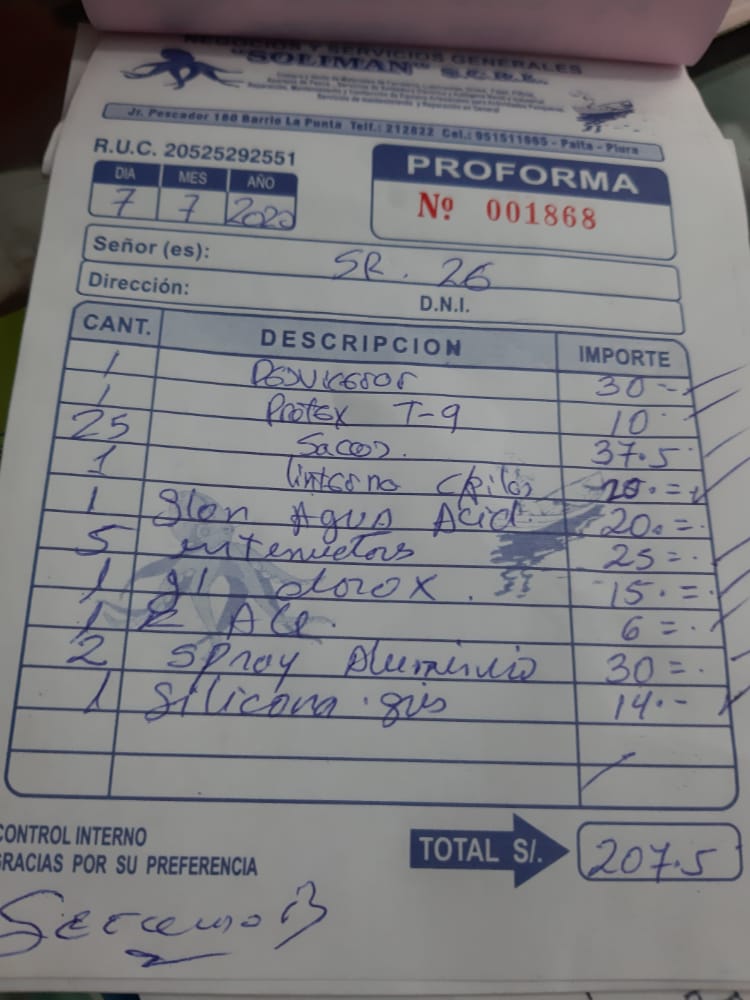 NEGOCIOS Y SERVICIOS GENERALES
"SOLIMAN" S.C.R.L.
Jr. Pescador 160 Barrio La Punta Telf.: 212822 Cel.: 951511965 - Paita - Piura
R.U.C. 20525292551
DIA MES AÑO
7 7 2020
PROFORMA
Nº 001868
Señor (es): SR. 26
Dirección: D.N.I.
CANT. DESCRIPCION IMPORTE
1 30
1 Protex T-9 10
25 Sacos. 37.5
1 linterna
1 Glon Agua Acid. 20. =.
5 25 =.
1 gl clorox. 15. =.
1 K Ace. 6 =.
2 Spray Aluminio 30 =.
1 Silicona gris 14.-
CONTROL INTERNO
GRACIAS POR SU PREFERENCIA
TOTAL S/. 207.5